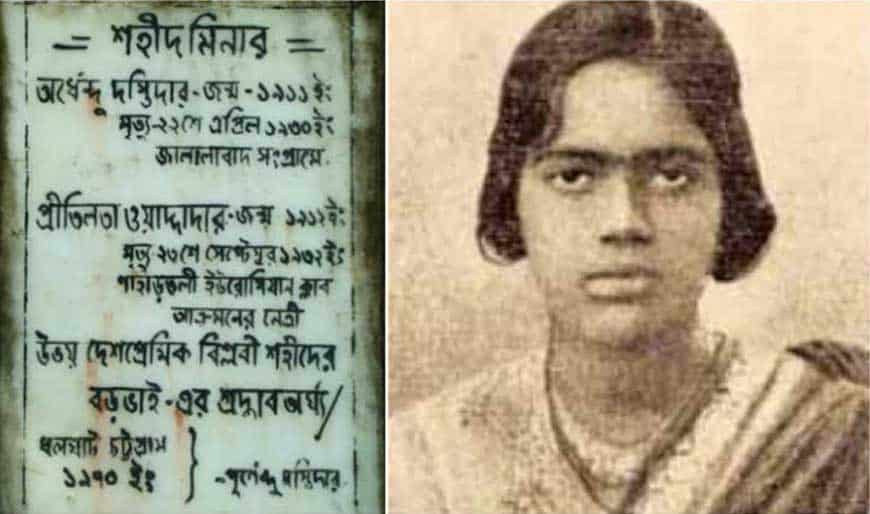 = শহীদ মিনার =
অর্ধেন্দু দস্তিদার - জন্ম - ১৯১১ ইং
মৃত্যু - ২২শে এপ্রিল ১৯৩০ ইং
জালালাবাদ সংগ্রামে.
প্রীতিলতা ওয়াদ্দাদার - জন্ম ১৯১২ ইং
মৃত্যু ২৩শে সেপ্টেম্বর ১৯৩২ ইং
পাহাড়তলী ইউরোপিয়ান ক্লাব
আক্রমনের নেত্রী
উভয় দেশপ্রেমিক বিপ্লবী শহীদের
বড়ভাই - এর শ্রদ্ধার অর্ঘ্য /
ধলঘাট চট্টগ্রাম
১৯৭০ ইং } - পূর্ণেন্দু দস্তিদার.